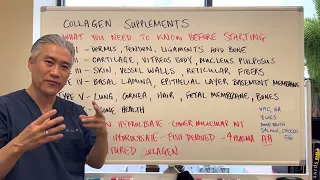 COLLAGEN SUPPLEMENTS
WHAT YOU NEED TO KNOW BEFORE STARTING
I - DERMIS, TENDON, LIGAMENTS AND BONE
- CARTILAGE, VITREOUS BODY, NUCLEUS PULPOSUS
- SKIN, VESSEL WALLS, RETICULAR FIBERS
E IV - BASAL LAMINA, EPITHELIAL LAYER, BASEMENT MEMBRANE
TYPE V - LUNG, CORNEA, HAIR, FETAL MEMBRANE, BONES
BONE HEALTH
HYDROLYSATE - LOWER MOLECULAR WT
HYDROLYSATE - FISH DERIVED - ↑ PLASMA AA
TURED COLLAGEN